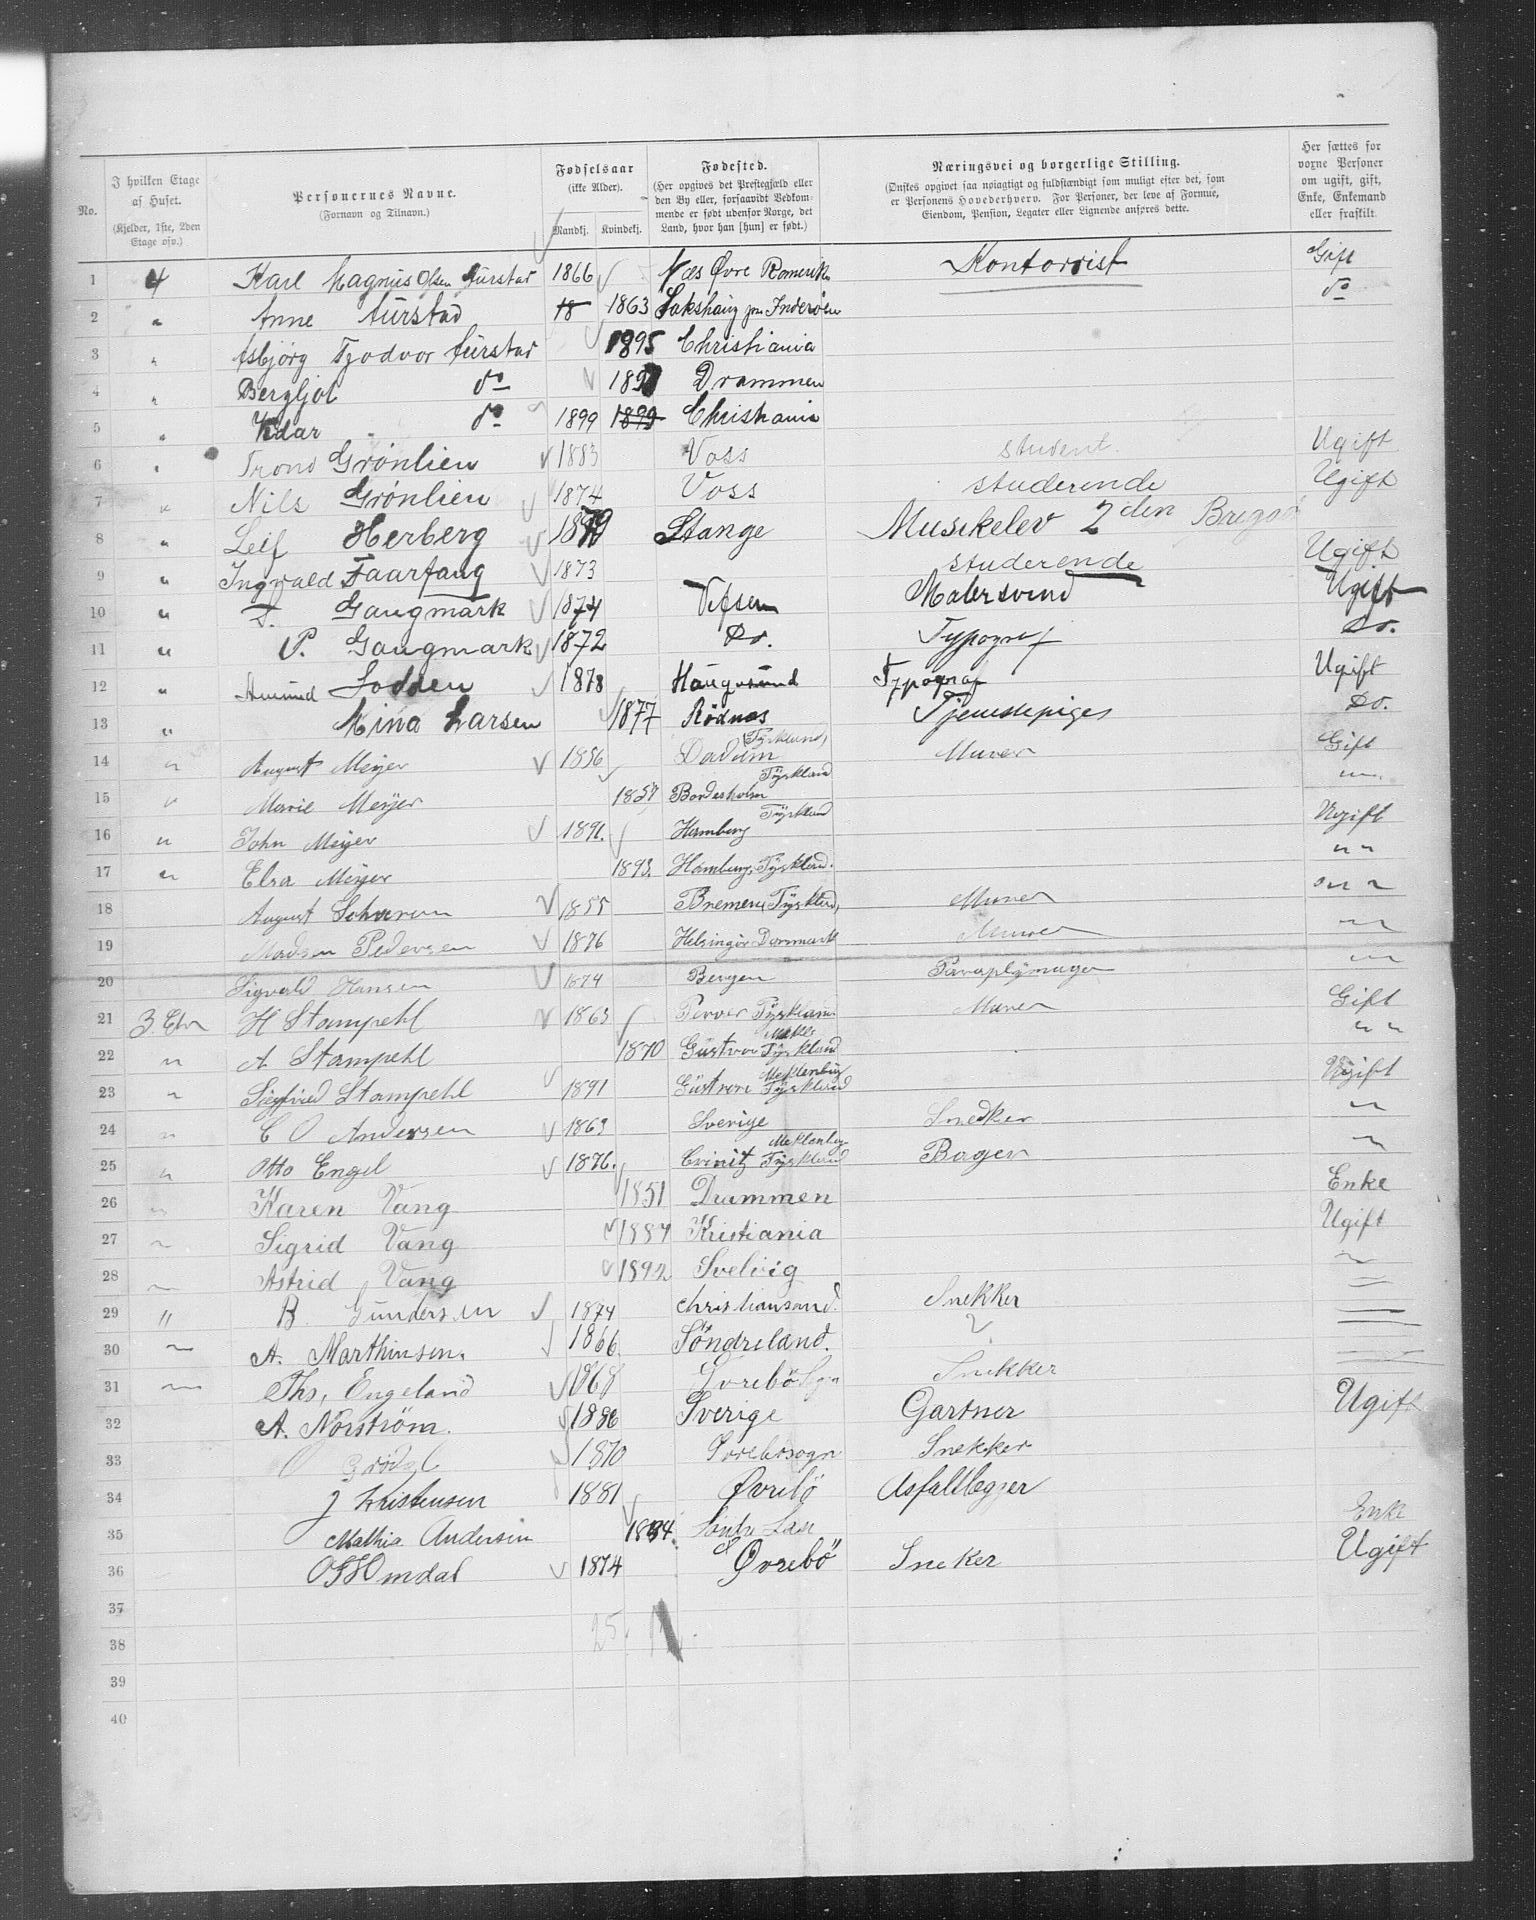 No.
I hvilken Etage af Huset. (Kjelder, 1ste, 2den Etage osv.)
Personernes Navne. (Fornavn og Tilnavn.)
Fødselsaar (ikke Alder). Mandkj. Kvindekj.
Fødested. (Her opgives det Prestegjæld eller den By eller, forsaavidt Vedkommende er født udenfor Norge, det Land, hvor han [hun] er født.)
Næringsvei og borgerlige Stilling. (Ønskes opgivet saa nøiagtigt og fuldstændigt som muligt efter det, som er Personens Hovederhverv. For Personer, der leve af Formue, Eiendom, Pension, Legater eller Lignende anføres dette.
Her sættes for voxne Personer om ugift, gift, Enke, Enkemand eller fraskilt.
1 4 Karl Magnus Olsen Aurstad 1866 Næs Øvre Romerik Kontorist Gift
2 " Anne Aurstad 18 1863 Sakshaug Inderøen do
3 " Asbjörg Aurstad 1895 Christiania
4 " Bergljot do 189 Drammen
5 " Vidar do 1899 1899 Christiania
6 " Trond Grønlien 1883 Voss student. Ugift
7 " Nils Grønlien 1874 Voss studerende Ugift
8 " Leif Herberg 1879 Stange Musikelev 2den Brigade
9 " Ingvald Faarfang 1873 studerende Ugift
10 " Gaugmark 1874 Vefsen Malersvend Ugift
11 " P. Gaugmark 1872 Do. Typograf Do.
12 " Amund Sodden 1878 Haugesund Typograf Ugift
13 " Mina Larsen 1877 Rödnæs Tjenestepiges Do.
14 " August Meyer 1856 (Tyskland) Murer Gift
15 " Marie Meyer 1857 Bordesholm Tyskland "
16 " John Meyer 1891. Hamburg Tyskland Ugift
17 " Elsa Meyer 1893. Hamburg, Tyskland. " "
18 August 1855 Bremen, Tyskland, Murer " "
19 Madsen Pedersen 1876 Helsingör Danmark Murer "
20 Sigvald Hansen 1874 Bergen Paraplymager "
21 3 Etn H Stampehl 1863 Tyskland Murer Gift
22 " A Stampehl 1870 Güstrow Tyskland " "
23 " Siegfried Stampehl 1891 Güstrow Meklenburg Tyskland Ugift
24 " C O Andersen 1863 Sverige Snedker "
25 " Otto Engel 1876. Crivitz Meklenburg Tyskland Bager "
26 " Karen Vang 1851 Drammen Enke
27 " Sigrid Vang 1887 Kristiania Ugift
28 " Astrid Vang 1892 Svelvig "
29 " B Gundersen 1874 Christiansand. Snekker
30 " A. Marthinsen. 1866. Söndreland.
31 " Ths. Engeland 1868 Øvrebö Sgn Snekker
32 A. Norström. 1886 Sverige Gartner Ugift
33 1870 Snekker
34 J Kristensen 1881 Øvrebö Asfaltlægger
35 Mathia Andersen Enke
36 Omdal 1874 Øvrebö Sneker Ugift
37
38
39
40
25